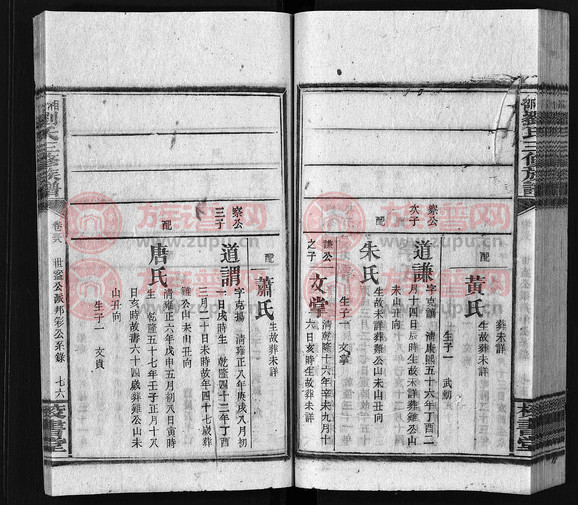 劉氏三修族譜
葬未詳
配
黃氏
生故葬未詳
生子一 武朝
察公
次子
道謙
字克讀 清康熙五十六年丁酉二
月十四日辰時生故未詳葬雞公山
未山丑向
配
朱氏
生故未詳葬雞公山未山丑向
生子一 文掌
謙公
之子
文掌
清乾隆十六年辛未九月十
六日亥時生故葬未詳
配
蕭氏
生故葬未詳
察公
三子
道謂
字克揚 清雍正八年庚戌八月初
日戌時生 乾隆四十二年丁酉
三月二十日未時故年四十七歲葬
雞公山未山丑向
配
唐氏
清雍正六年戊申五月初八日寅時
生 乾隆五十七年壬子正月十八
日亥時故壽六十四歲葬雞公山未
山丑向
生子一 文貴
湘
劉氏三修族譜
世鑑公派邦彩公系錄
七六
族譜网
www.zupu.cn
族譜网
www.zupu.cn